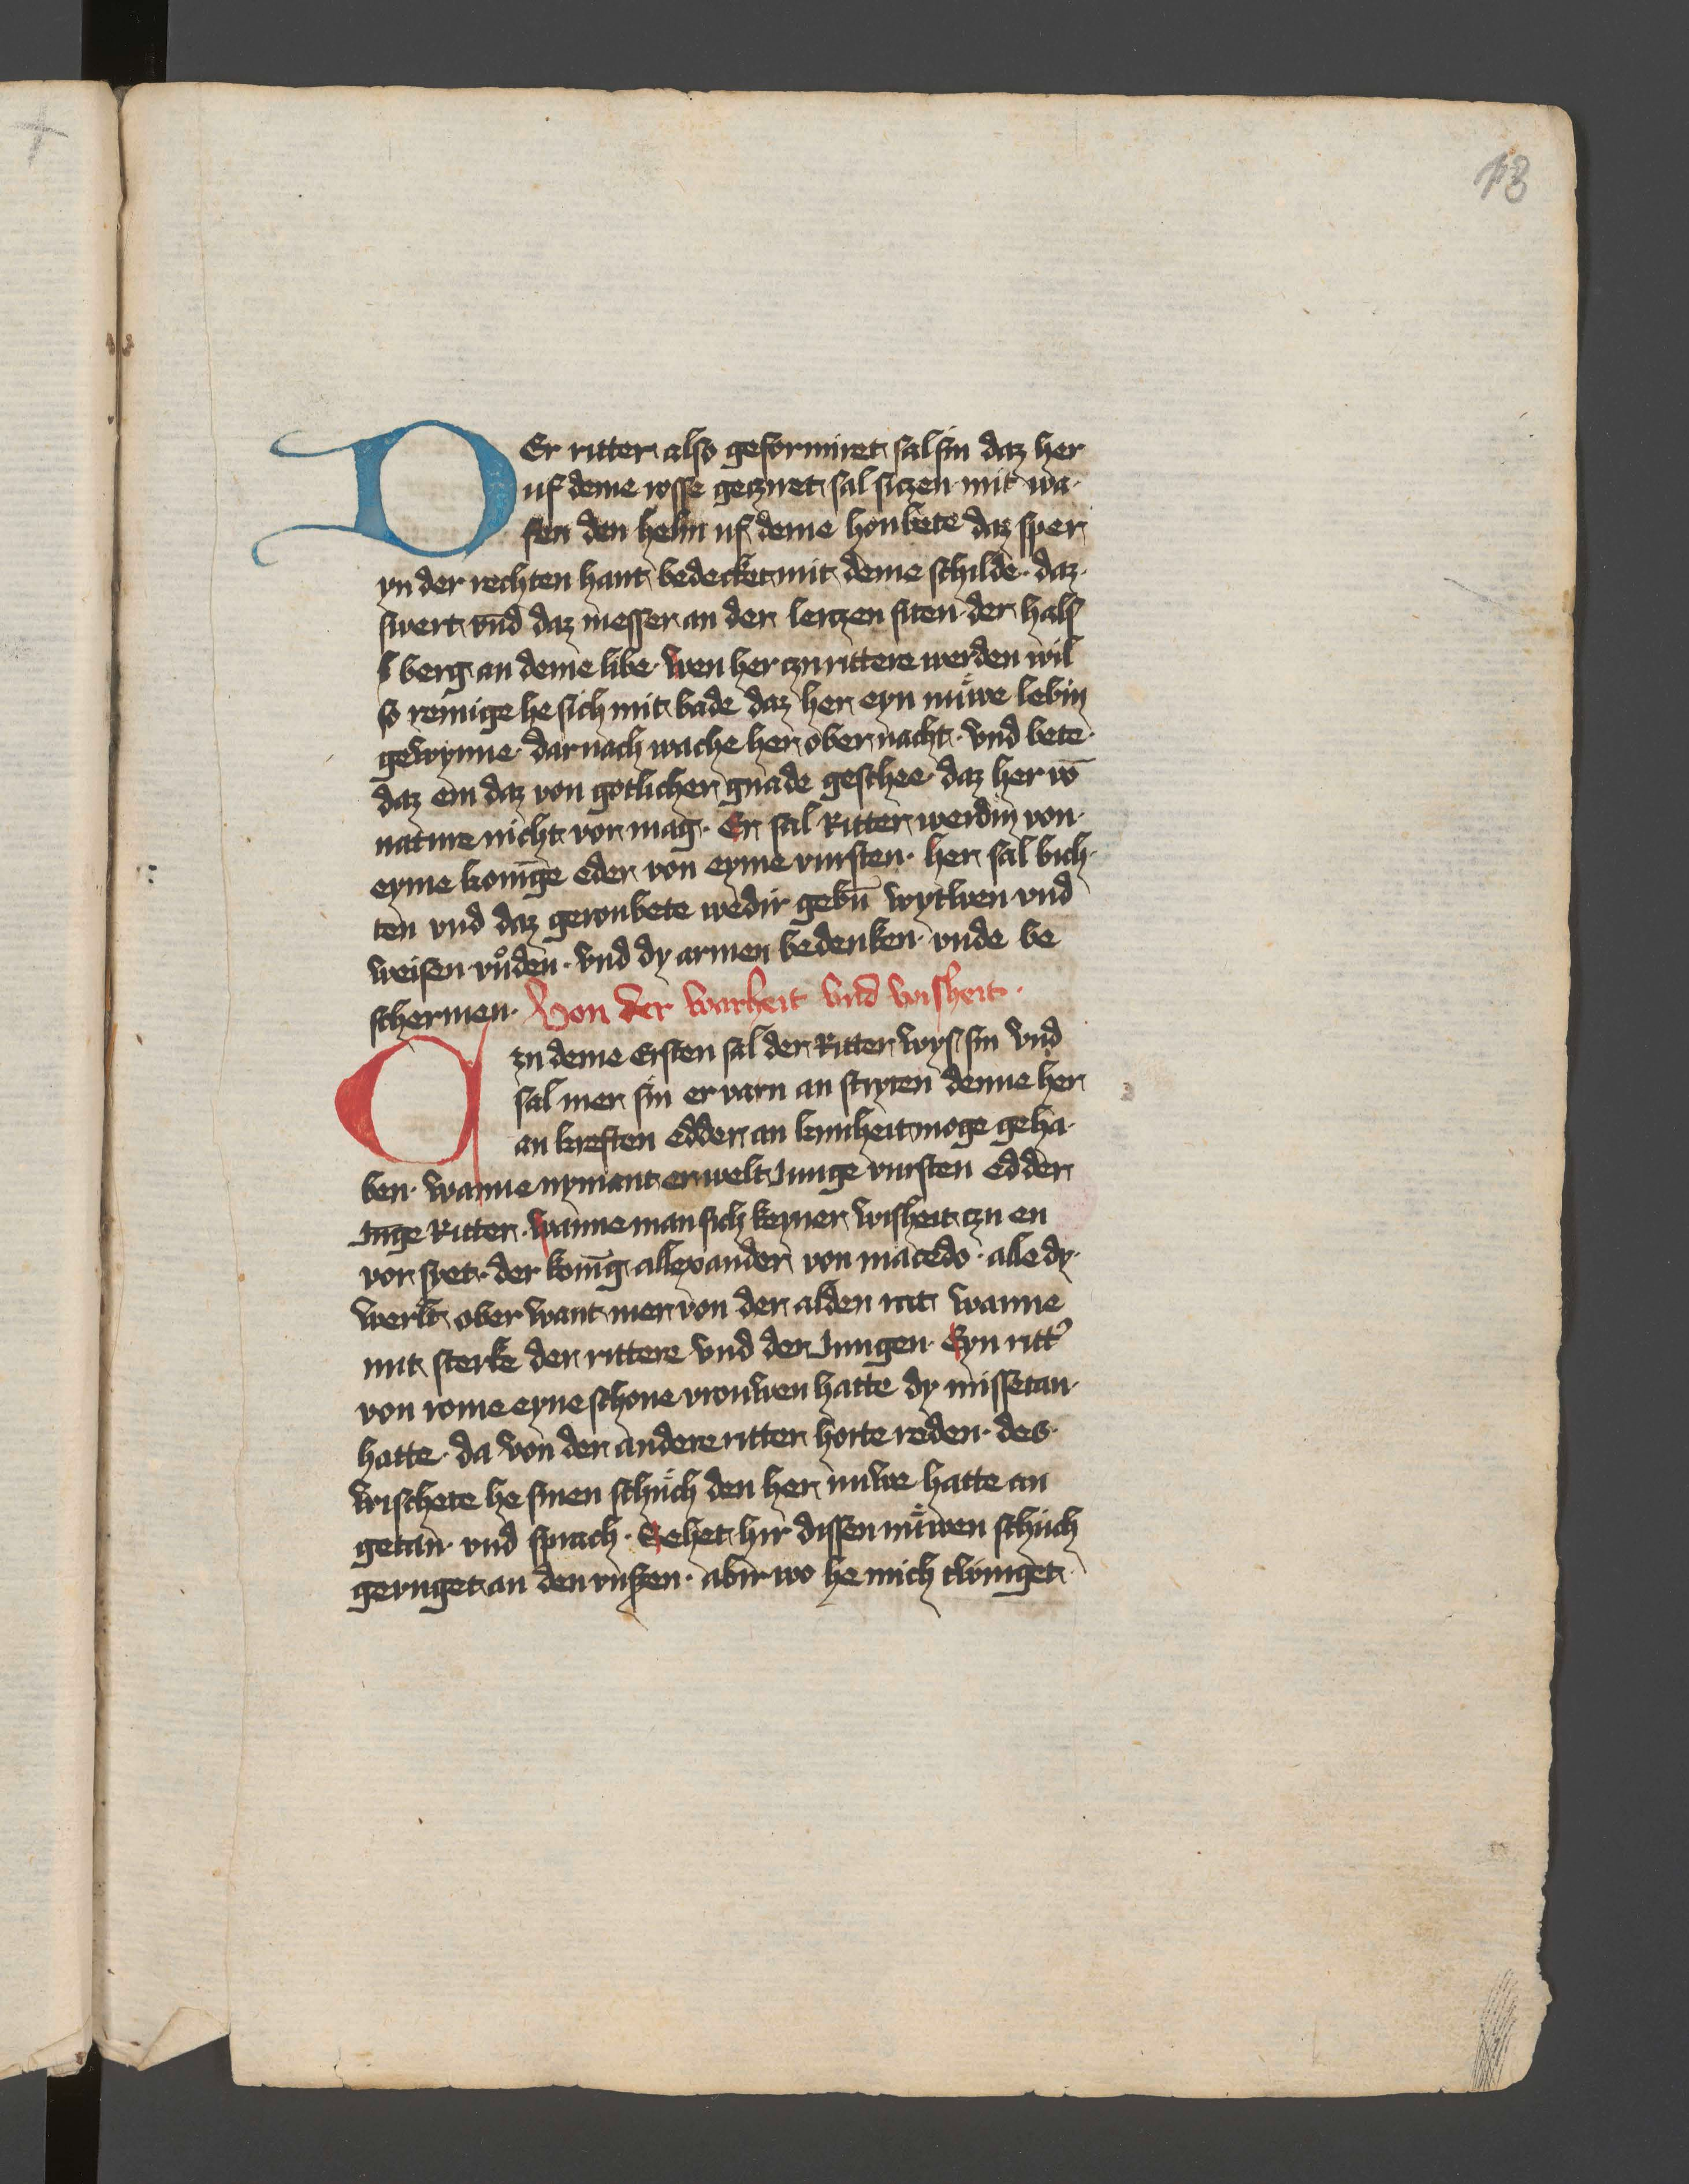 18
DEr ritter also geformiret sal sin daz her
uf deme rosse gecziret sal siczen mit wa·
fen den helm uf deme houbete daz sper
yn der rechten hant bedecket mit deme schilde· daz·
swert vnd daz messer an der lenczen siten· der hals
s berg an deme libe· wen her czu rittere werden wil
so reinige he sich mit bade daz her eyn nuwe lebin
gewynne· dar nach wache her ober nacht· vnd bete·
daz em daz von gotlicher gnade geschee· daz her vō
nature nicht vor mag· Er sal Ritter werdin von·
eyme konīge eder von eyme vursten· her sal bich·
ten vnd daz geroubete wedir gebn̄ wytwen vnd
weisen vůden· vnd dy armen bedenken· vnde be
schermen· Von der warheit vnd wisheit·
Czu deme Ersten sal der Ritter wys sin vnd
sal mer sin er varn an stryten denne her
an kreften edder an kunheit moge geha·
ben· wanne nymant erwelt Junge vursten edder
Jūge Ritter· wanne man sich keyner wisheit czu en
vor syet· der konīg allexander von macedo· alle dy·
werlt ober want mer von der alden rat wanne
mit sterke der rittere vnd der Jungen· Eyn ritt'
von rome eyne schone vrouwen hatte dy missetan·
hatte· da von der andere ritter horte reden· des·
wischete he sinen schuch den her nuwe hatte an
getan· vnd sprach· Sehet hir dissen nuwen schuch
gerynget an den vuszen· abir wo he mich twinget